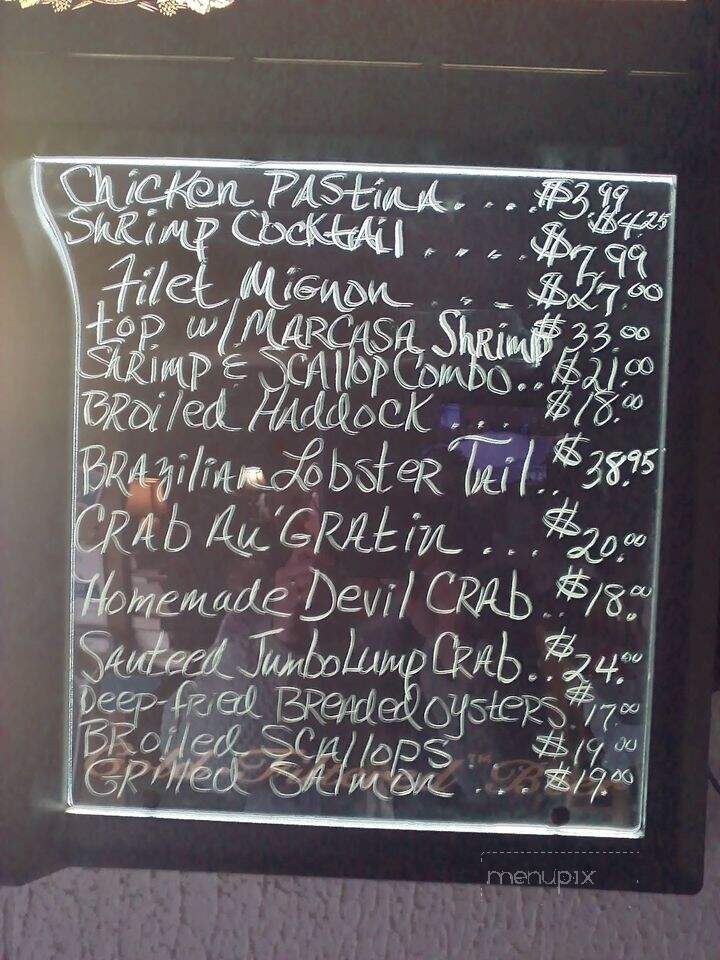 Chicken Pastina.... $3.99
$4.25
Shrimp Cocktail .... $7.99
Filet Mignon .... $27.00
top w/ Marcasa Shrimp $33.00
Shrimp & Scallop Combo.. $21.00
Broiled Haddock .... $18.00
Brazilian Lobster Tail.. $38.95
Crab Au'Gratin .... $20.00
Homemade Devil Crab.. $18.00
Sauteed Jumbo Lump Crab.. $24.00
Deep-fried Breaded Oysters. $17.00
Broiled Scallops... $19.00
Grilled Salmon .... $19.00
menupix